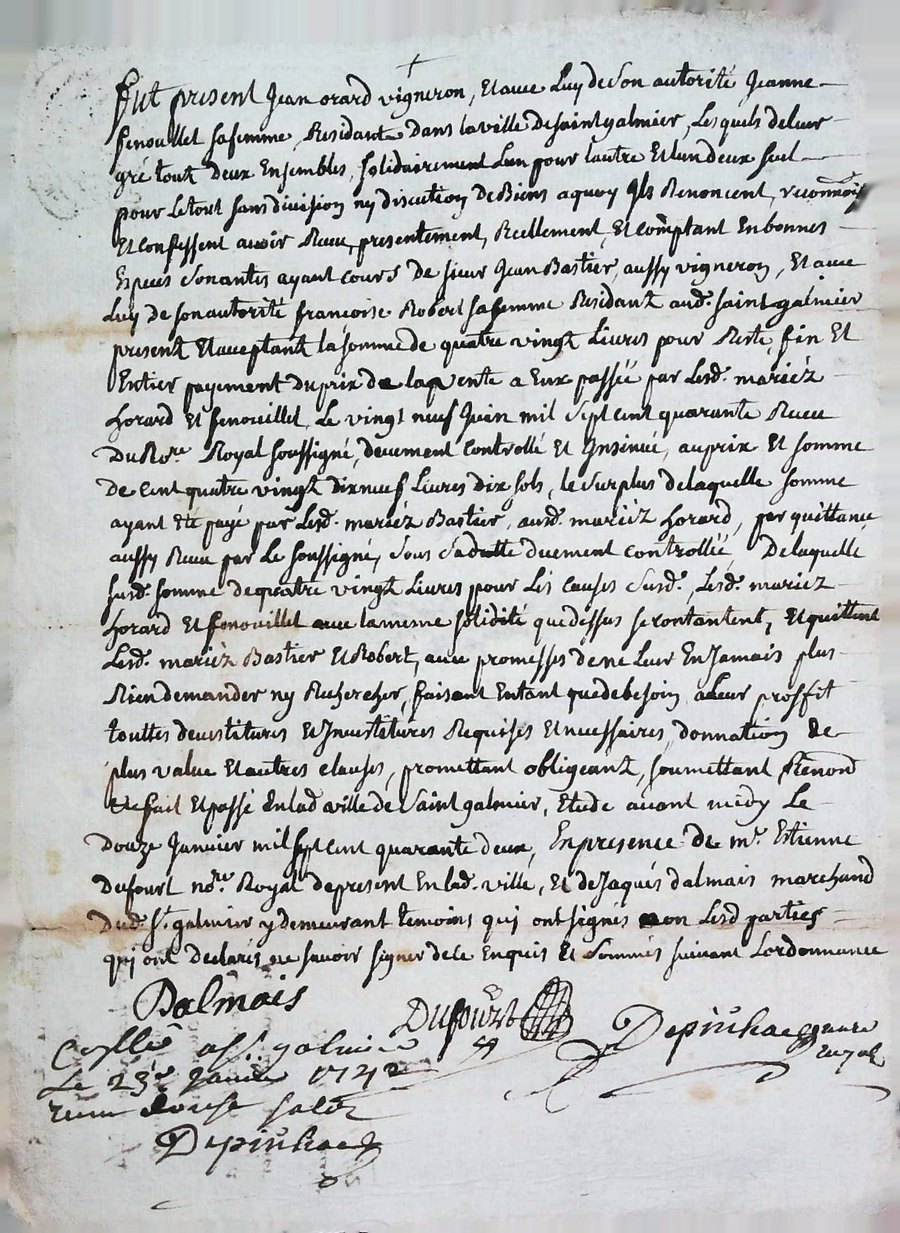 Fut present Jean orard vigneron, Et avec Luy de Son autorité Jeanne
fenouillet sa femme, Residants Dans la ville De saint galmier, Lesquels de leur
gré touts deux Ensembles, solidairement L'un pour l'autre Et lun deux seul
pour Le tout sans division ny discution De Biens a quoy Ils Renoncent, reconnois
Et Confessent avoir Receu, presentement, Reellement, Et Comptant En bonnes
Especes Sonantes ayant cours De sieur Jean Bastier, aussy vigneron, Et avec
Luy de son autorité francoise Robert sa femme Residantz aud. saint galmier
presentz Et aceptantz la somme de quatre vingtz Livres pour Reste, fin Et
Entier payement du prix de la vente a Eux passée par Lesd. mariéz
horard Et fenouillet, Le vingt neuf Juin mil Sept cent quarante Receu
Du No.re Royal soussigné, deuement Controllé Et Insinué, au prix Et somme
De Cent quatre vingtz dix neuf Livres dix sols, le Surplus de laquelle Somme
ayant été payé par Lesd. mariéz Bastier, ausd. mariéz horard, par quittance
aussy Receu par Le soussigné, Sous Sa datte duement controllée, De laquelle
susd. somme de quatre vingtz Livres pour Les causes Susd. Lesd. mariéz
horard Et fenouillet avec la meme solidité que dessus se contantent, Et quittent
Lesd. mariéz Bastier Et Robert, avec promesses de ne Leur En Jamais plus
Rien demander ny Rechercher, faisant Entant que de besoin a Leur proffit
touttes devestitures Et Investitures Requises Et necessaires, donnation de
plus value Et autres clauses, promettant obligeantz, soumettant Renond
fait Et passé En lad ville de Saint galmier, Etude avant midy Le
Douze Janvier mil sept cent quarante deux, En presence de m.e Estienne
Dufourt no.re Royal de present En lad. ville, Et de Jaques dalmais marchand
Dud. S.t galmier y demeurant temoins qui ont signés non Lesd parties
qui ont Declarés ne savoir signer de ce Enquis Et Sommés suivant Lordonnance
Dalmais
Dufourt
a S.t galmier
Le 23e Janvier 1742
sols